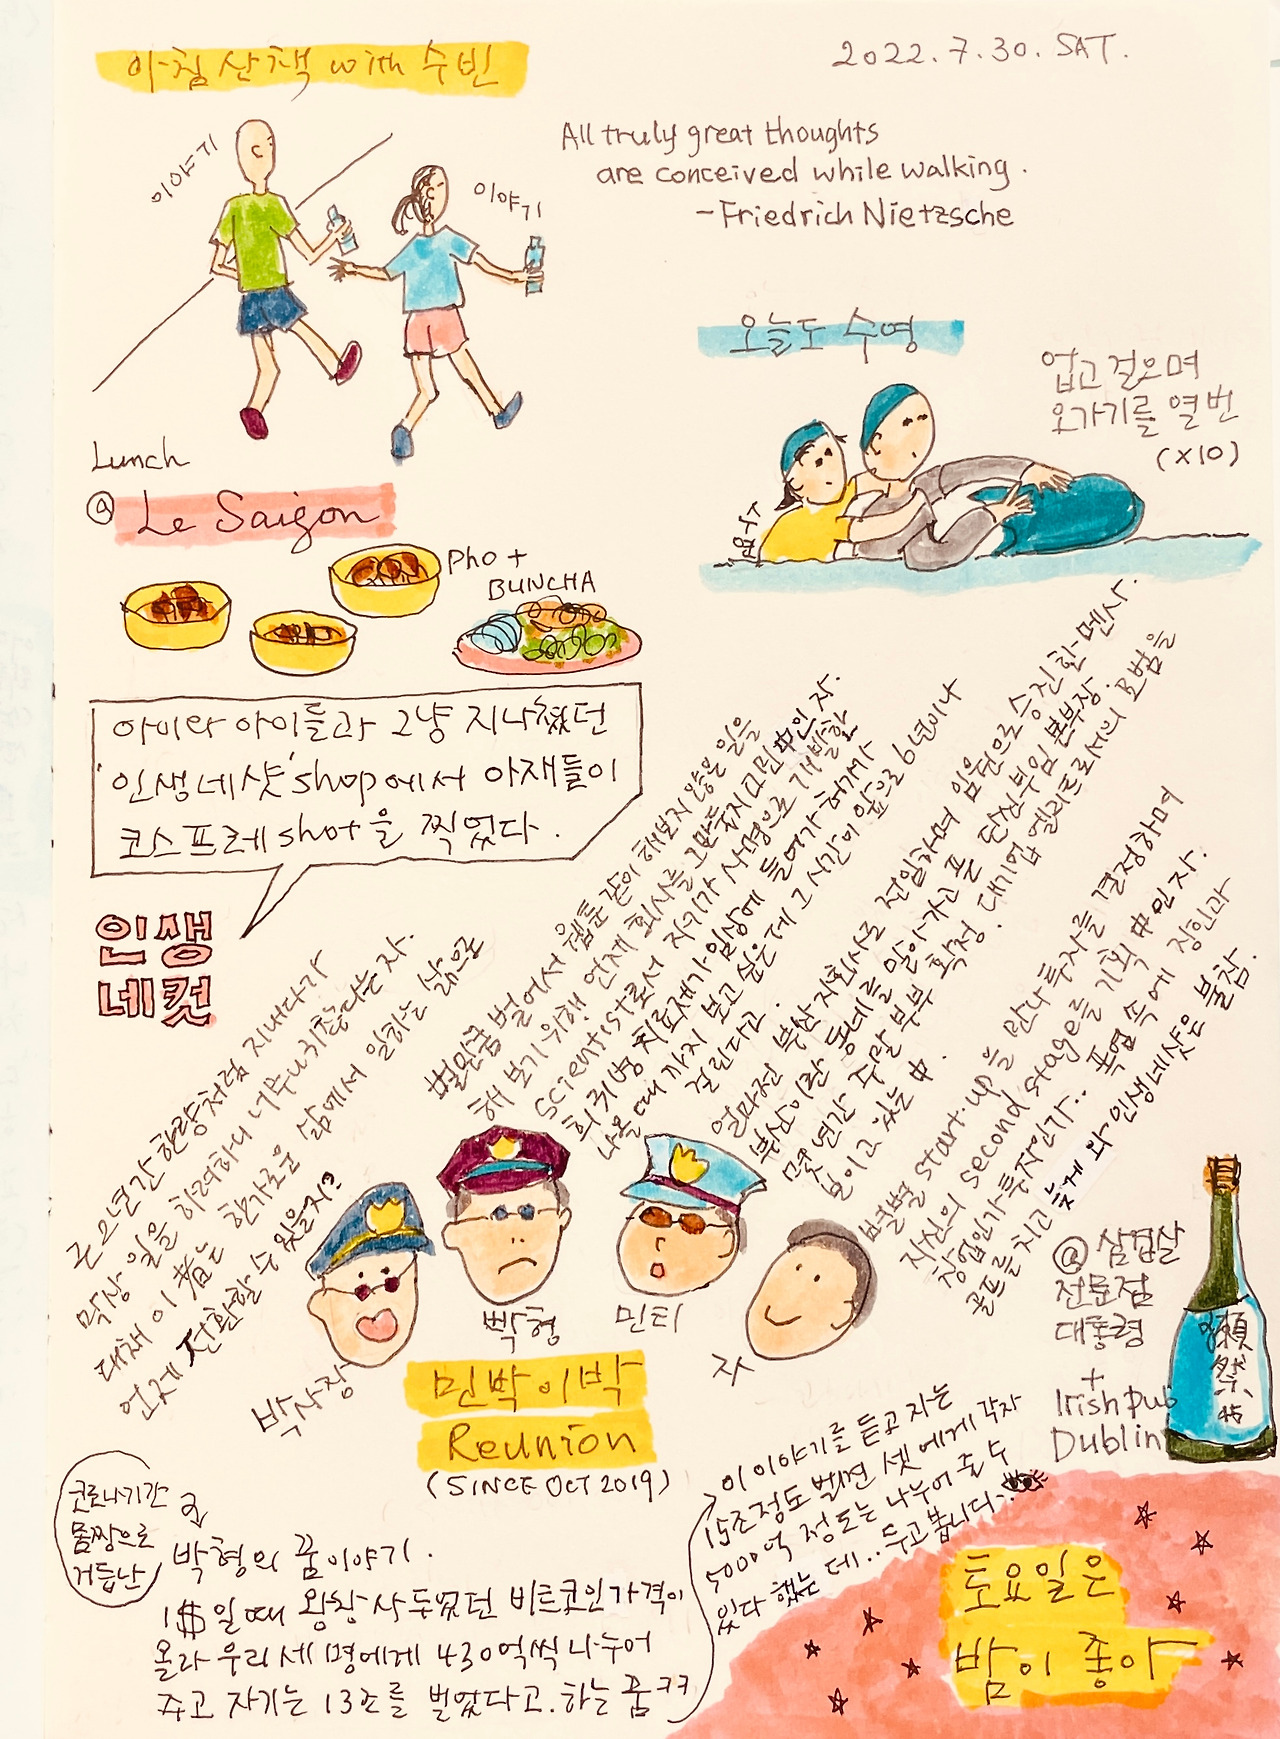 아침 산책 with 수빈
2022.7.30. SAT.
이야기
이야기
All truly great thoughts
are conceived while walking.
- Friedrich Nietzsche
오늘도 수영
업고 걸으며
오가기를 열번
(X10)
Lunch
@ Le Saigon
Pho +
BUNCHA
아미와 아이들과 그냥 지나쳤던
'인생네샷' shop에서 아재들이
코스프레 shot을 찍었다.
인생
네컷
근 2년간 한량처럼 지내다가
막상 일을 하려하니 너무나 귀찮다는 자.
대체 이 者는 한가로운 삶에서 일하는 삶으로
언제 전환할 수 있을지?
박사장
벌만큼 벌어서 웹툰같이 해보지 않은 일을
해 보기 위해 언제 회사를 그만둘지 고민中인 자.
Scientist로서 자기가 사명으로 개발한
희귀병 치료제가 임상에 들어가 허가가
나올 때까지 보고 싶은데 그 시간이 앞으로 6년이나
걸린다고.
박형
얼마전 부산 지회사로 전임하며 임원으로 승진한 멘사.
부산이란 동네를 알아가고픈 단신부임 본부장.
몇 년간 주말부부 확정. 대기업 엘리트로서의 모범을
보이고 있는 中.
민티
별별 start-up을 만나 투자를 결정하며
자신의 second stage를 기획 中인 자.
창업인가 투자인가.. 폭염 속에 장인과
골프를 치고 늦게 와 인생네샷은 불참.
주
민박이박
Reunion
(SINCE OCT 2019)
@ 삼겹살
전문점
대통령
+
Irish Pub
Dublin
獺祭 45
코로나기간
몸짱으로
거듭난
박형의 꿈이야기.
1$일때 왕창 사두었던 비트코인가격이
올라 우리 세 명에게 430억씩 나누어
주고 자기는 13조를 벌었다고.하는 꿈 ㅋㅋ
이 이야기를 듣고 자는
15조정도 벌면 셋에게 각자
5000억 정도는 나누어 줄 수
있다 했는데.. 두고봅시다~
토요일은
밤이 좋아